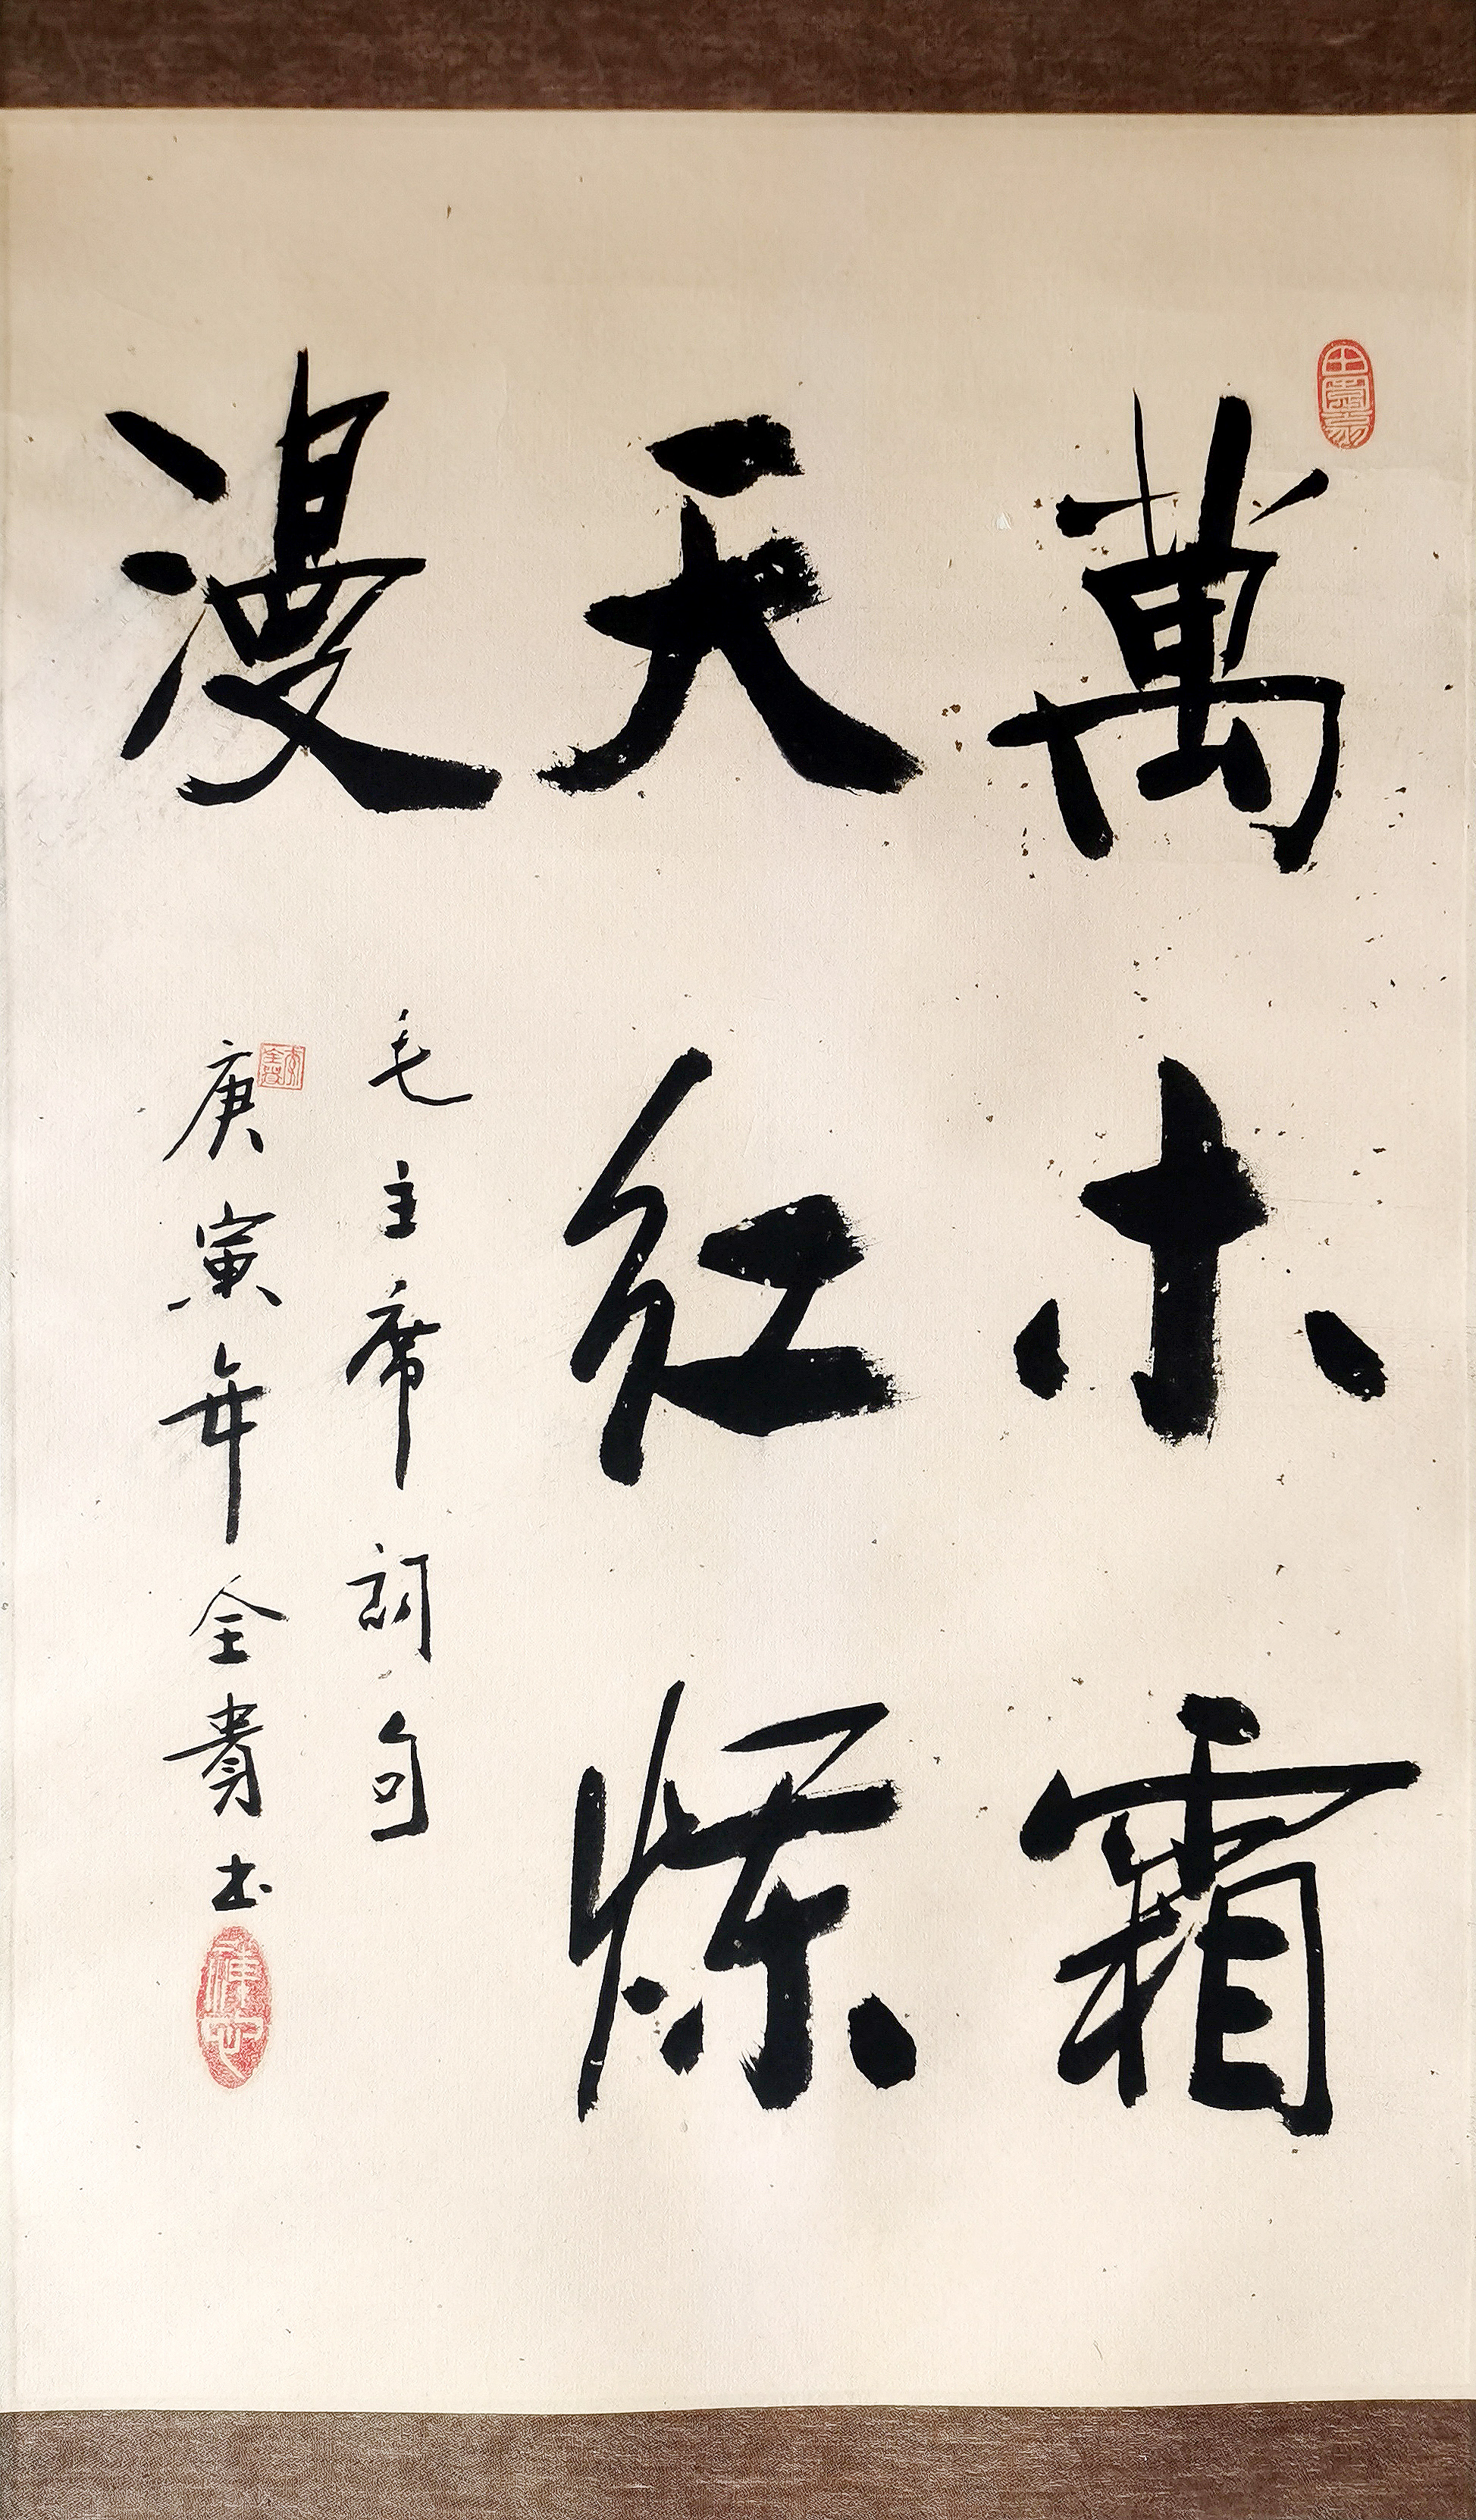 萬木霜
天紅爍
漫
毛主席詞句
庚寅年全貴书